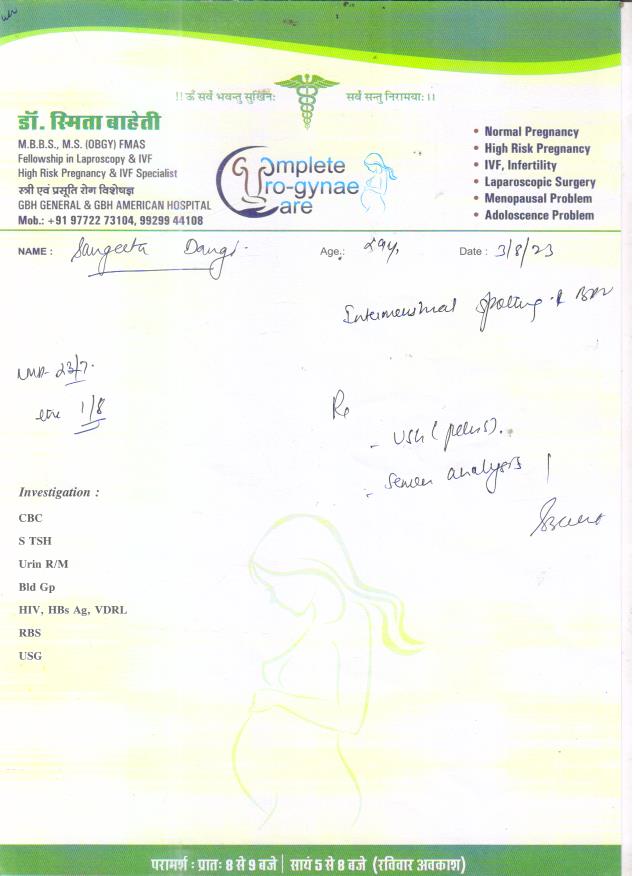 !! ॐ सर्वे भवन्तु सुखिनः सर्वे सन्तु निरामयाः ।।
डॉ. स्मिता बाहेती
M.B.B.S., M.S. (OBGY) FMAS
Fellowship in Laproscopy & IVF
High Risk Pregnancy & IVF Specialist
स्त्री एवं प्रसूति रोग विशेषज्ञ
GBH GENERAL & GBH AMERICAN HOSPITAL
Mob.: +91 97722 73104, 99299 44108
Complete
Uro-gynae
Care
• Normal Pregnancy
• High Risk Pregnancy
• IVF, Infertility
• Laparoscopic Surgery
• Menopausal Problem
• Adoloscence Problem
NAME : Sangeeta Dangi Age.: 29y, Date : 3/8/23
Intermenstrual spotting
LMP- 23/7.
1/8
Rx
- USG (pelvis).
- Semen analysis
Investigation :
CBC
S TSH
Urin R/M
Bld Gp
HIV, HBs Ag, VDRL
RBS
USG
परामर्श : प्रातः 8 से 9 बजे | सायं 5 से 8 बजे (रविवार अवकाश)